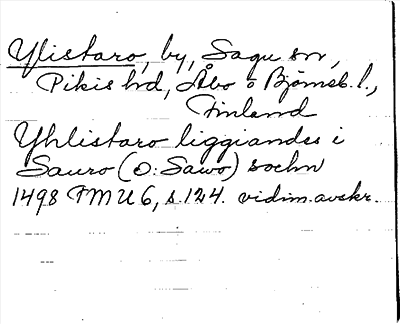 Ylistaro, by, Sagu sn,
Pikis hd, Åbo o Björneb. l.,
Finland
Yhlistaro liggiandes i
Sauro (o: Sawo) sochn
1498 FMU 6, s. 124. vidim. avskr.